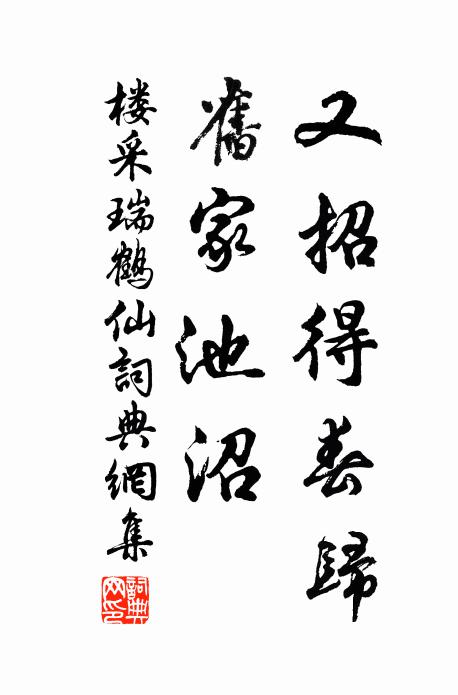 又招得春歸
舊家池沼
楼采瑞鶴仙詞典網集
詞典網印